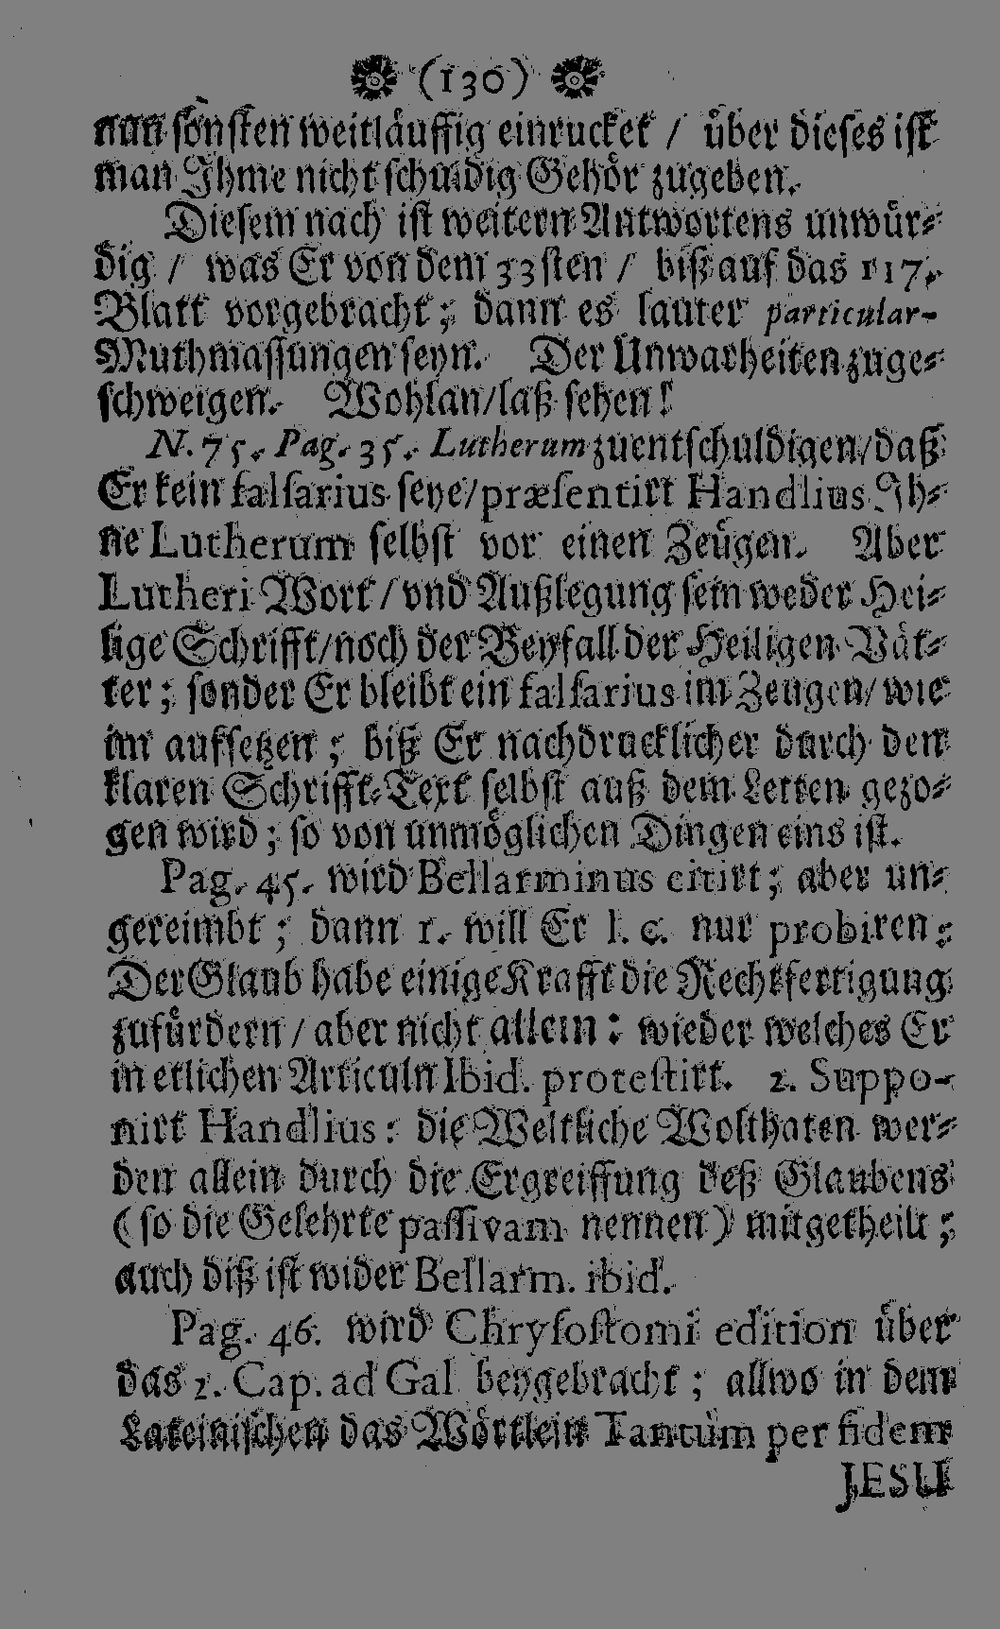 (130)
nun sonsten weitläuffig einrucket / über dieses ist
man Ihme nicht schuldig Gehör zugeben.
Diesem nach ist weitern Antwortens unwür-
dig / was Er von dem 33sten / biß auf das 117.
Blatt vorgebracht; dann es lauter particular-
Muthmassungen seyn. Der Unwarheiten zuge-
schweigen. Wohlan/laß sehen!
N. 75. Pag. 35. Lutherum zuentschuldigen/daß
Er kein falsarius seye/præsentirt Handlius Ih-
ne Lutherum selbst vor einen Zeügen. Aber
Lutheri Wort / vnd Außlegung sein weder Hei-
lige Schrifft/noch der Beyfall der Heiligen Vät-
ter; sonder Er bleibt ein falsarius im Zeugen/ wie
im aufsetzen; biß Er nachdrucklicher durch den
klaren Schrifft-Text selbst auß dem Letten gezo-
gen wird; so von unmöglichen Dingen eins ist.
Pag. 45. wird Bellarminus citirt; aber un-
gereimbt; dann 1. will Er l. c. nur probiren:
Der Glaub habe einige Krafft die Rechtfertigung
zufürdern / aber nicht allein: wieder welches Er
in etlichen Articuln Ibid. protestirt. 2. Suppo-
nirt Handlius: die Weltliche Wolthaten wer-
den allein durch die Ergreiffung deß Glaubens
(so die Gelehrte passivam nennen) mitgetheilt;
auch diß ist wider Bellarm. ibid.
Pag. 46. wird Chrysostomi edition über
das 2. Cap. ad Gal beygebracht; allwo in dem
Lateinischen das Wörtlein Tantùm per fidem
JESU